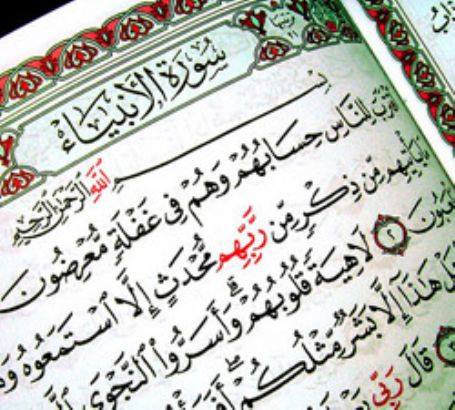 سُورَةُ الأَنبِيَاءِ
بِسْمِ ٱللَّهِ ٱلرَّحْمَٰنِ ٱلرَّحِيمِ
لِلنَّاسِ حِسَابُهُمْ وَهُمْ فِى غَفْلَةٍ مُّعْرِضُونَ
يَأْتِيهِم مِّن ذِكْرٍ مِّن رَّبِّهِم مُّحْدَثٍ إِلَّا ٱسْتَمَعُوهُ
٢ لَاهِيَةً قُلُوبُهُمْ وَأَسَرُّوا۟ ٱلنَّجْوَى
هَلْ هَٰذَآ إِلَّا بَشَرٌ مِّثْلُكُمْ
٣ قَالَ رَبِّى